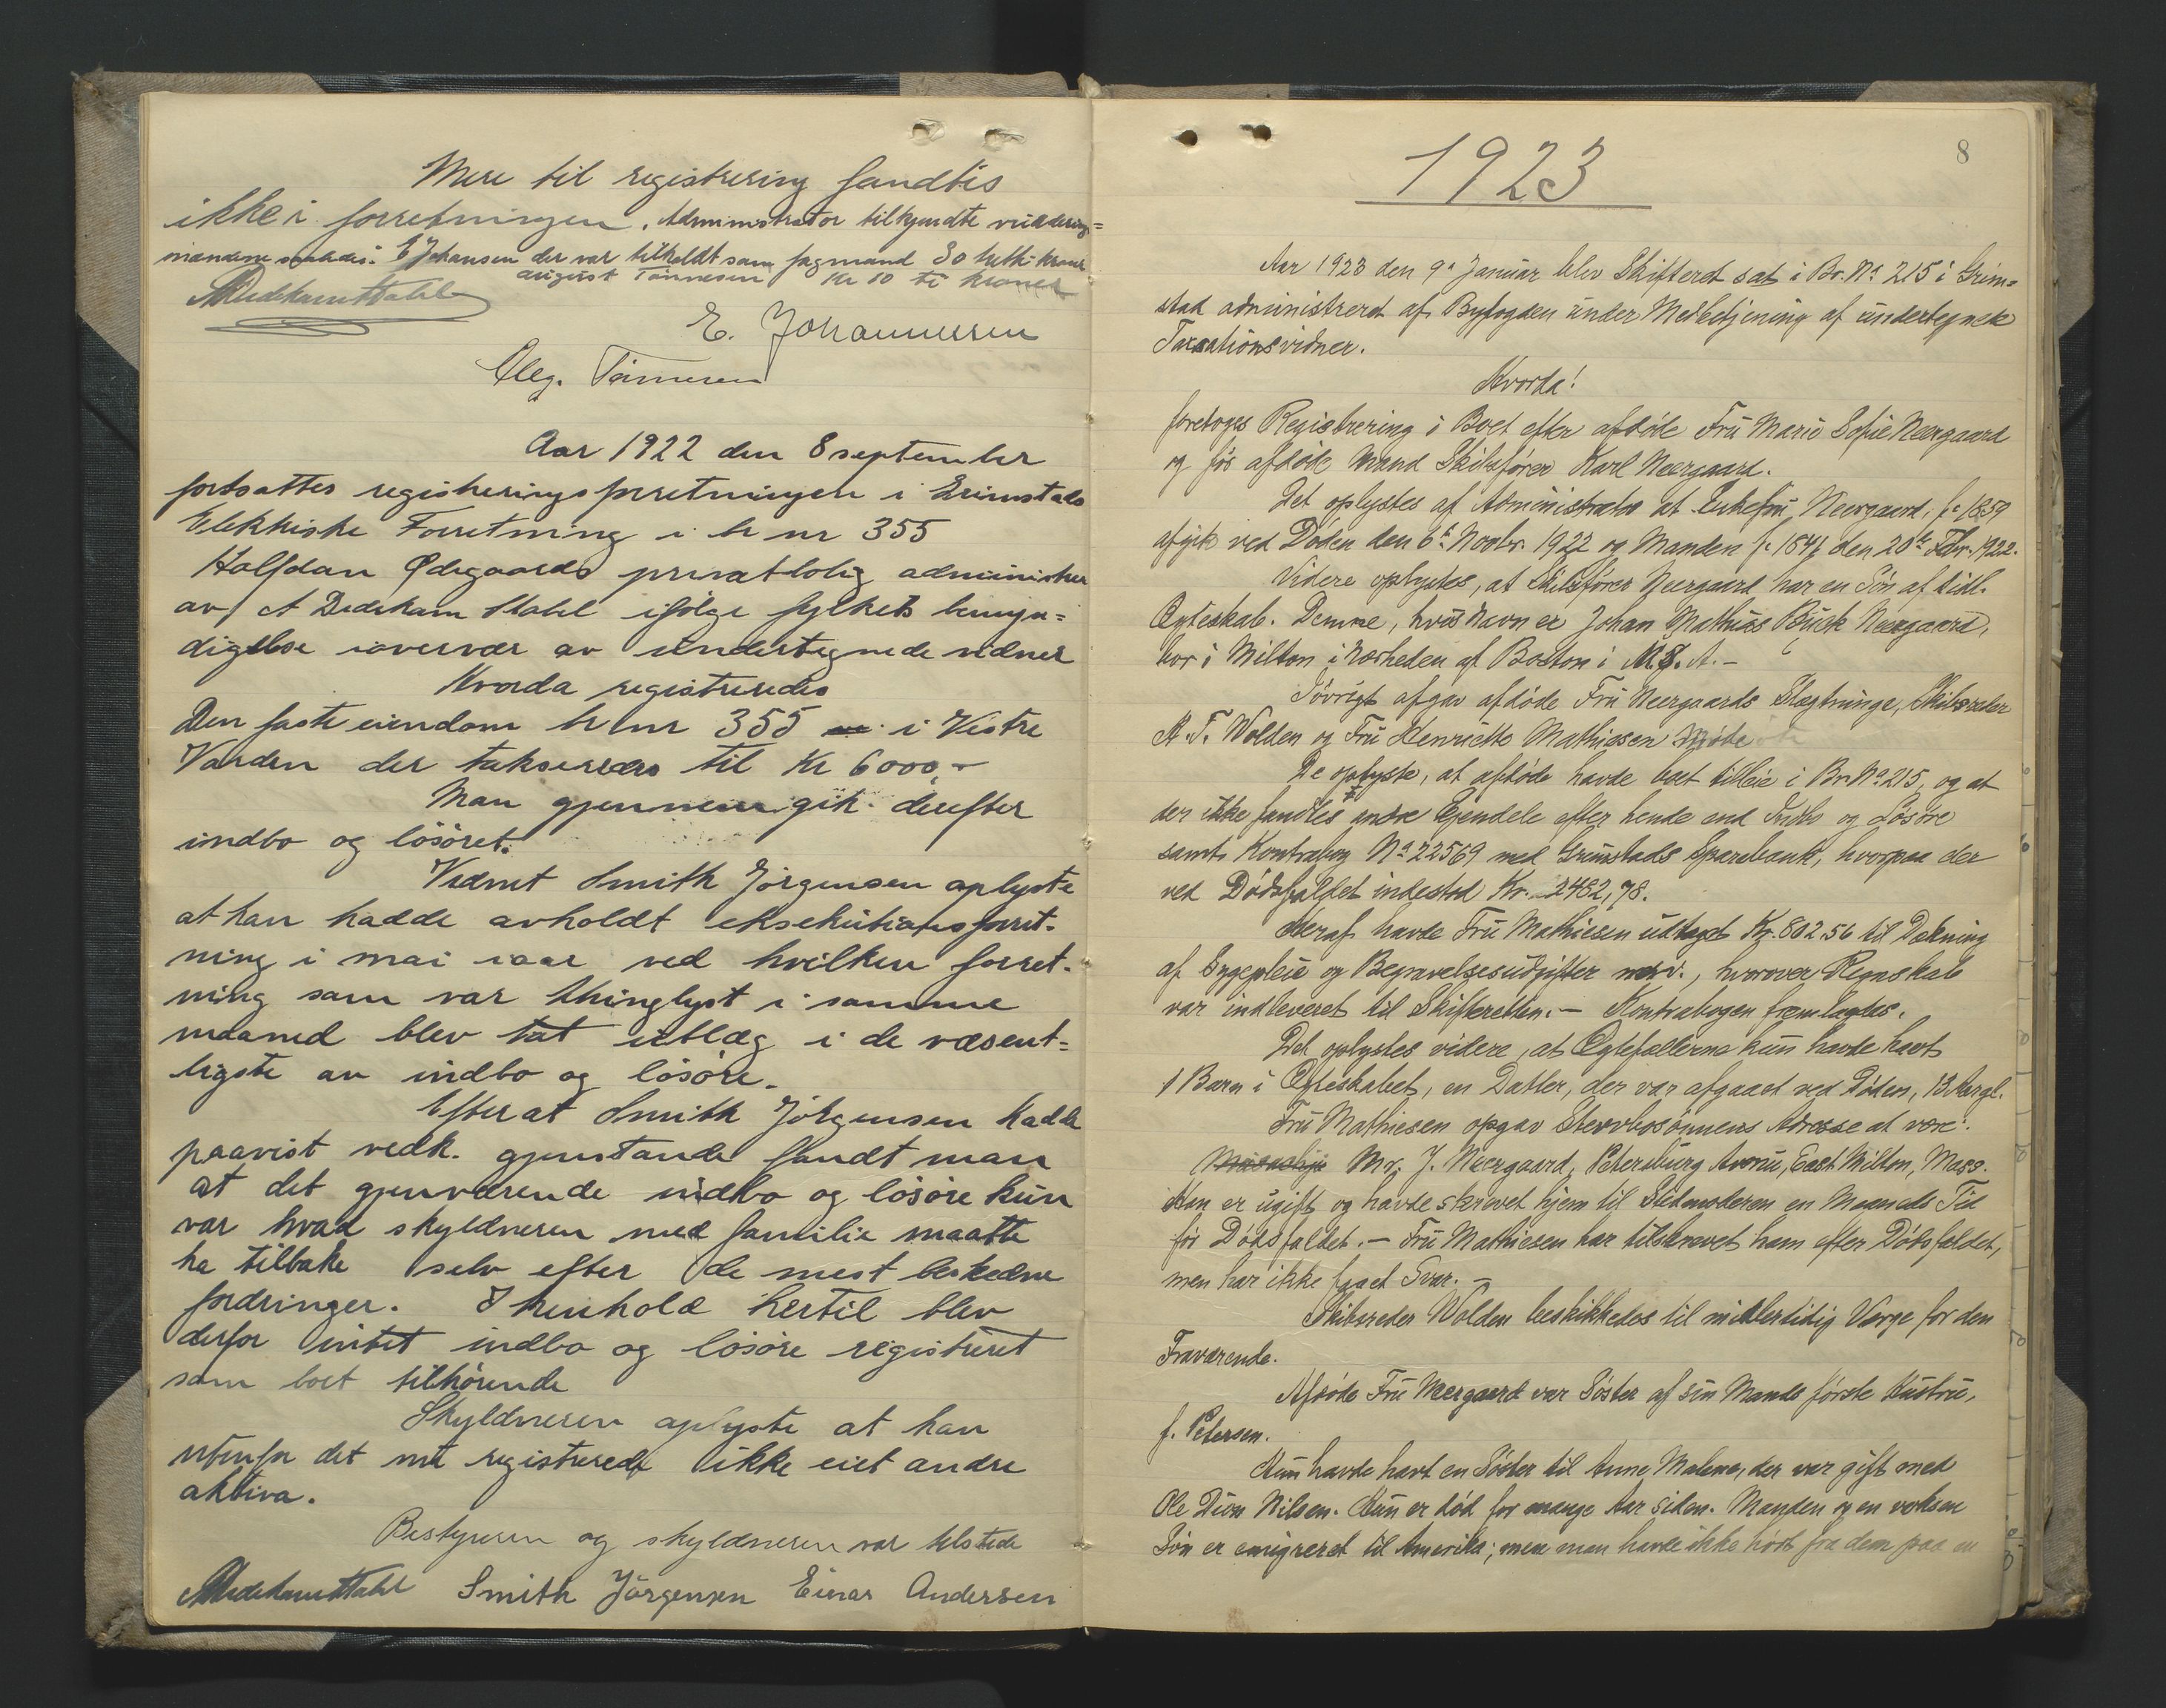 Mere til registrering fandtis
ikke i forretningen. Administrator tilkjendte vurderings=
mændene saaledes: E Johansen der var tilkaldt som fagmand 30 tretti kroner
august Tönnesen Kr 10 ti kroner
ADedekamStahl
E. Johannessen
Aug. Tönnesen
Aar 1922 den 8 september
fortsattes registreringsforretningen i Grimstads
Elektriske Forretning i br nr 355
Halfdan Ødegaards privatbolig administrer
av A Dedekam Stahl ifölge fylkets bemyn=
digelse i overvær av undertegnede vidner
Hvorda registreredes
Den faste eiendom br nr 355 i Vestre
Varden der takseredes til Kr 6000,-
Man gjennemgik derefter
indbo og lösöret.
Vidnet Smith Jörgensen oplyste
at han hadde avholdt eksekutionsforret-
ning i mai iaar ved hvilken forret-
ning som var thinglyst i samme
maaned blev tat utlæg i de væsent=
ligste av indbo og lösöre.
Efter at Smith Jörgensen hadde
paavist vedk. gjenstande fandt man
at det gjenværende indbo og lösöre kun
var hvad skyldneren med familie maatte
ha tilbake selv efter de mest beskedne
fordringer. I henhold hertil blev
derfor intet indbo og lösöre registreret
som boet tilhörende
Skyldneren oplyste at han
utenfor det nu registrerede ikke eiet andre
aktiva.
Bestyreren og skyldneren var tilstede
ADedekamStahl Smith Jörgensen Einar Andersen
8
1923
Aar 1923 den 9de Januar blev Skifteret sat i Br. No 215 i Grim=
stad administreret af Byfogden under Medbetjening af undertegnede
Taxationsvidner.
Hvorda!
foretoges Registrering i Boet efter afdöde Fru Marie Sofie Neergaard
og för afdöde Mand Skibsförer Karl Neergaard.
Det oplystes af Administrator at Enkefru Neergaard, f. 1859
afgik ved Döden den 6te Novbr. 1922 og Manden f. 1841 den 20de Febr. 1922.
Videre oplystes, at Skibsförer Neergaard har en Sön af tidl.
Ægteskab. Denne, hvis Navn er Johan Mathias Buck Neergaard,
bor i Milton i Nærheden af Boston i U.S.A.-
Iövrigt afgav afdöde Fru Neergaards Slægtninge, Skibsreder
A. T. Wolden og Fru Henriette Mathiesen Möde
De oplyste, at afdöde havde boet tilleie i Br. No 215, og at
der ikke fandtes andre Ejendele efter hende end Indbo og Lösöre
samt Kontrabog No 22569 med Grimstads Sparebank, hvorpaa der
ved Dödsfaldet indestod Kr. 2482,78.
Heraf havde Fru Mathiesen udtaget Kr. 802.56 til Dækning
af Sygepleie og Begravelsesudgifter m.v., hvorover Regnskab
var indleveret til Skifteretten.- Kontrabogen fremlagdes.
Det oplystes videre, at Ægtefællerne kun havde havt
1 Barn i Ægteskabet, en Datter, der var afgaaet ved Döden, 13 Aar gl.
Fru Mathiesen opgav Stervbosönnens Adresse at være:
Mr. J. Neergaard, Petersburg Avenu, East Milton, Mass.
Han er ugift og havde skrevet hjem til Stedmoderen en Maaneds Tid
för Dödsfaldet.- Fru Mathiesen har tilskrevet ham efter Dödsfaldet,
men har ikke faaet Svar.-
Skibsreder Wolden beskikkedes til midlertidig Værge for den
Fraværende.
Afdöde Fru Neergaard var Söster af sin Mands förste Hustru,
f. Petersen.
Hun havde havt en Söster til Anne Malene, der var gift med
Ole Dion Nilsen. Hun er död for mange Aar siden. Manden og en voksen
Sön er emigreret til Amerika; men man havde ikke hört fra dem paa en